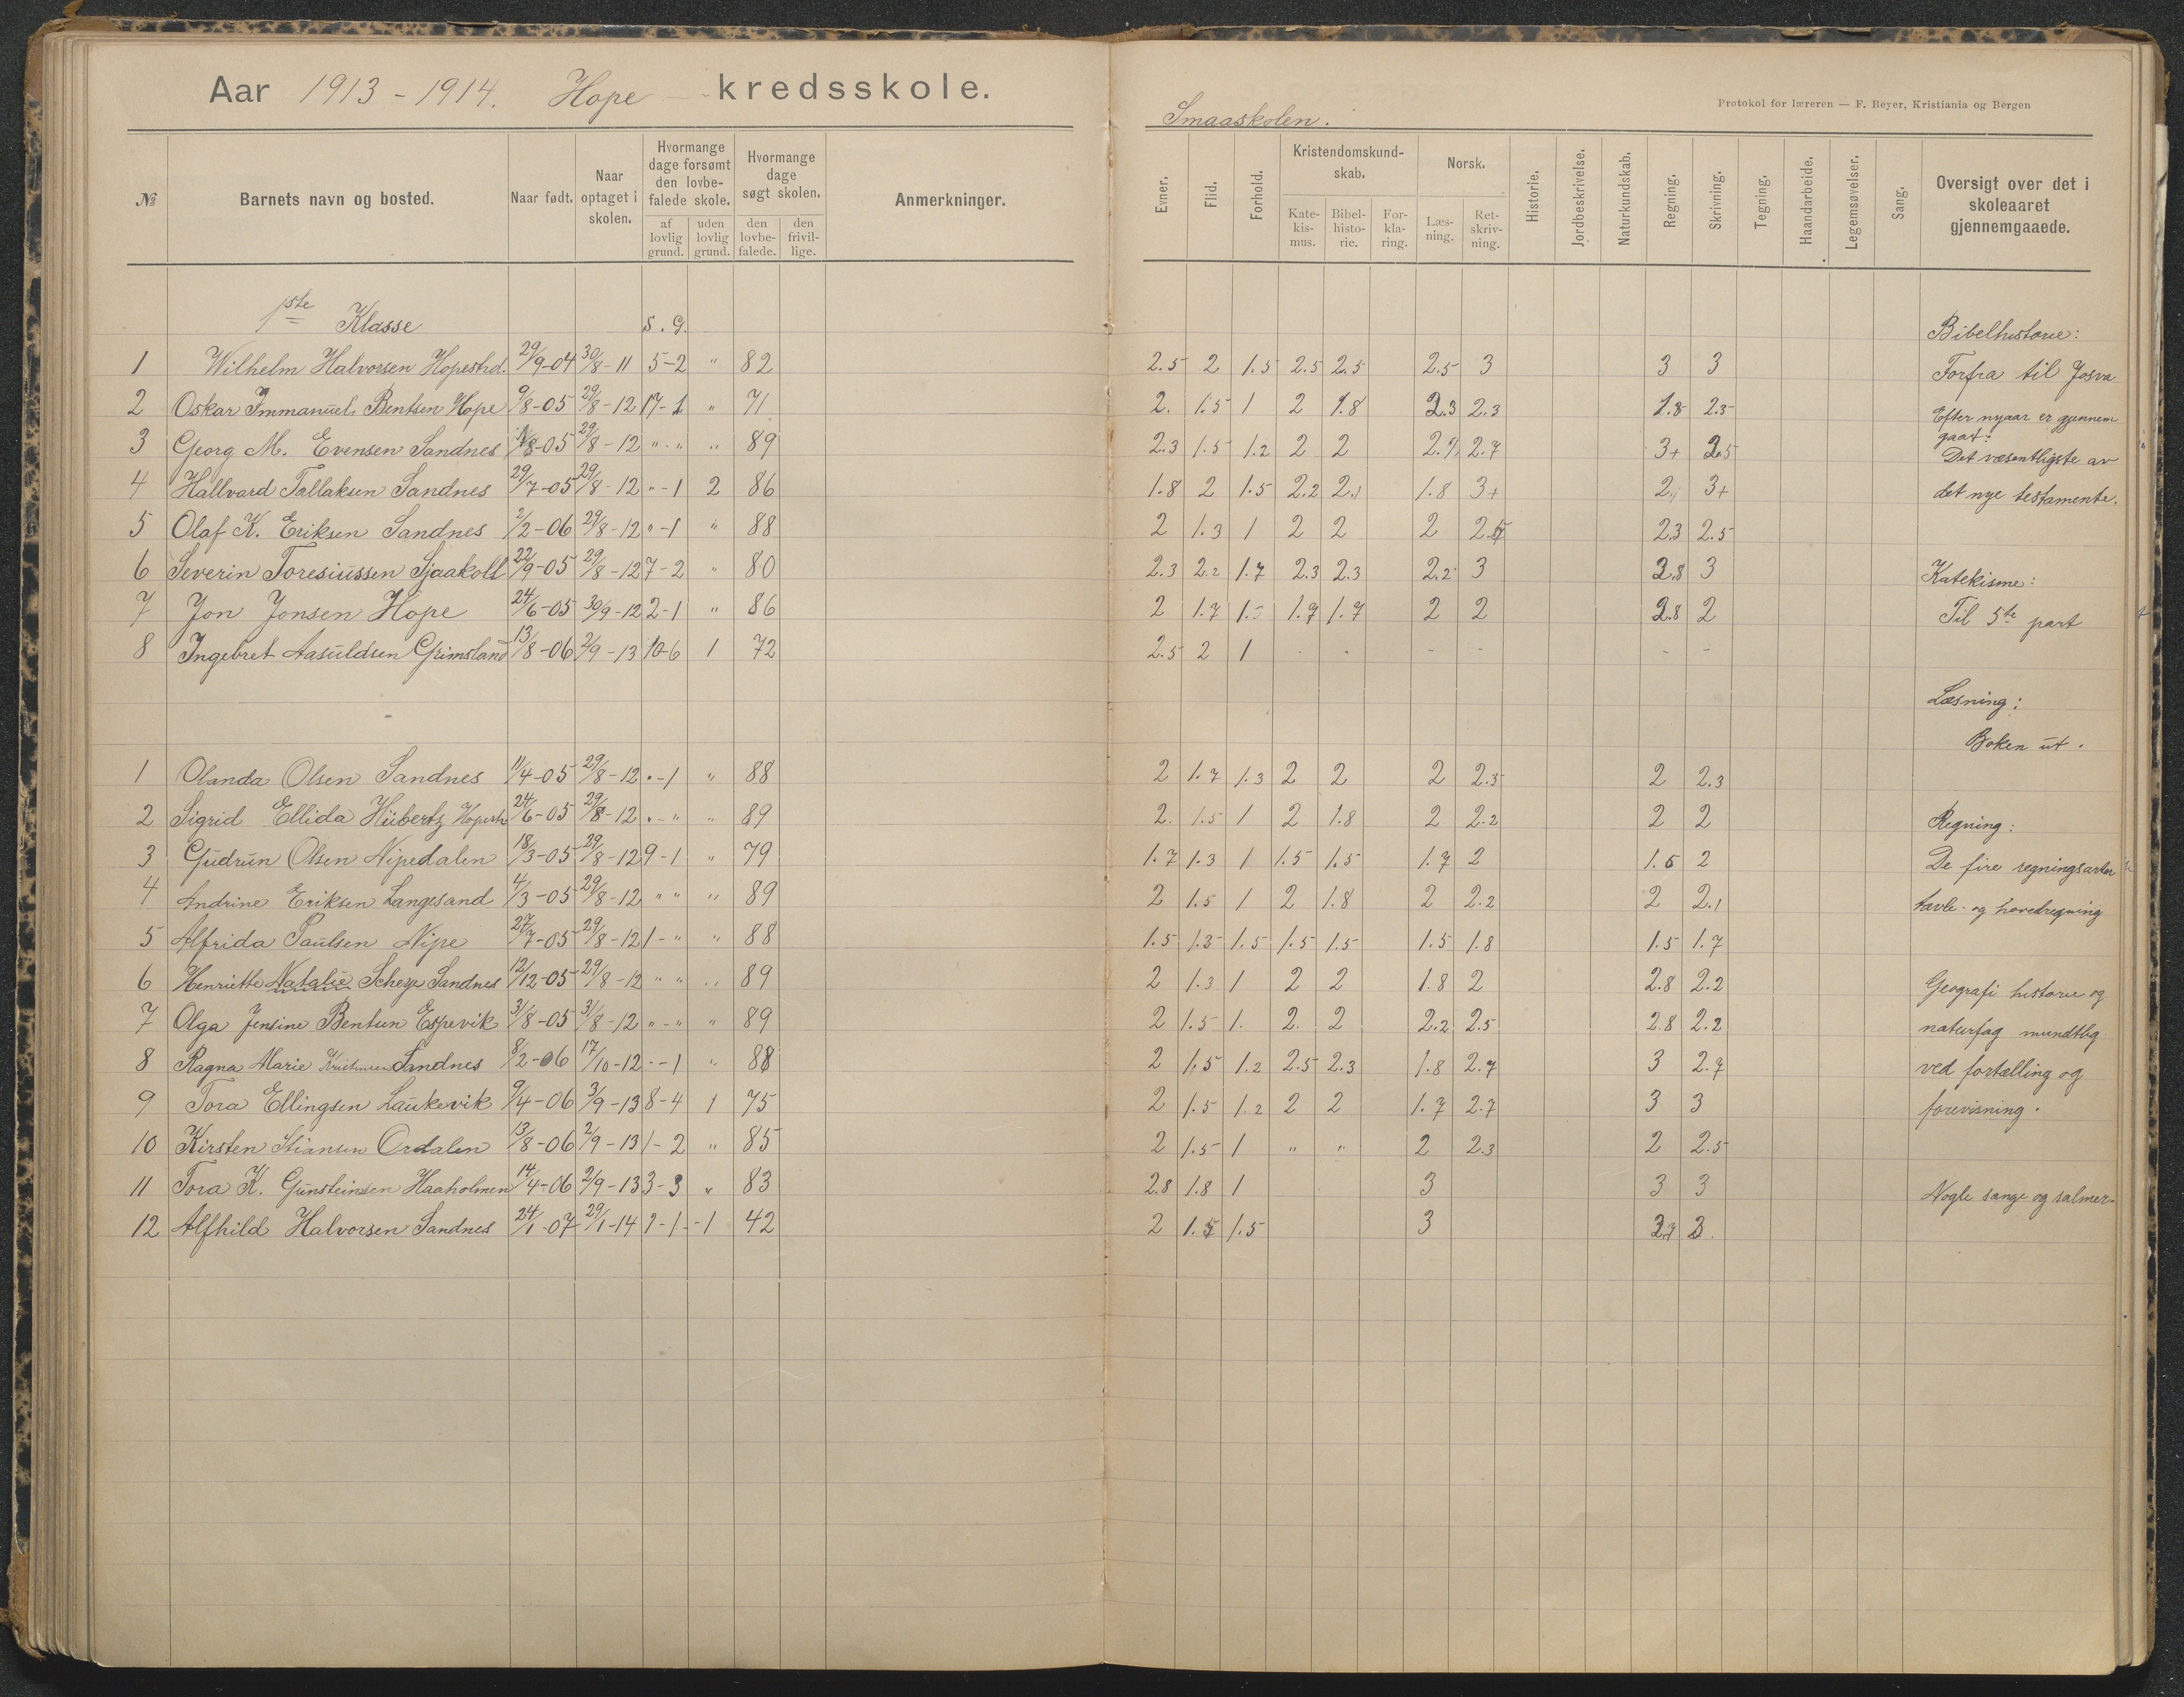 Aar 1913 - 1914. Hope - kredsskole.
Smaaskolen.
Protokol for læreren — F. Beyer, Kristiania og Bergen
№ | Barnets navn og bosted. | Naar født. | Naar optaget i skolen. | Hvormange dage forsømt den lovbefalede skole. af lovlig grund. | uden lovlig grund. | Hvormange dage søgt skolen. den lovbefalede. | den frivillige. | Anmerkninger. | Evner. | Flid. | Forhold. | Kristendomskundskab. Katekismus. | Bibelhistorie. | Forklaring. | Norsk. Læsning. | Retskrivning. | Historie. | Jordbeskrivelse. | Naturkundskab. | Regning. | Skrivning. | Tegning. | Haandarbeide. | Legemsøvelser. | Sang. | Oversigt over det i skoleaaret gjennemgaaede.
1ste Klasse S. G.
1 Wilhelm Halvorsen Hopestrd. 29/9-04 30/8-11 5-2 " 82 2.5 2 1.5 2.5 2.5 2.5 3 3 3
2 Oskar Immanuel Bentsen Hope 9/8-05 29/8-12 17-1 " 71 2. 1.5 1 2 1.8 2.3 2.3 1.8 2.3
3 Georg M. Evensen Sandnes 8-05 29/8-12 "-" " 89 2.3 1.5 1.2 2 2 2.7 3+ 2.5
4 Hallvard Tallaksen Sandnes 29/7-05 29/8-12 "-1 2 86 1.8 2 1.5 2.2 2.1 1.8 3+ 2. 3+
5 Olaf K. Eriksen Sandnes 2/2-06 29/8-12 "-1 " 88 2 1.3 1 2 2 2 2.3 2.5
6 Severin Toresiussen Sjaakoll 22/9-05 29/8-12 7-2 " 80 2.3 2.2 1.7 2.3 2.3 2.2 3 2.8 3
7 Jon Jonsen Hope 24/6-05 30/9-12 2-1 " 86 2 1.7 1.7 1.7 2 2 2.8 2
8 Ingebret Aasuldsen Grimsland 13/8-06 2/9-13 10-6 1 72 2.5 2 1 - - - - - -
1 Olanda Olsen Sandnes 11/4-05 29/8-12 "-1 " 88 2 1.7 1.3 2 2 2 2.3 2 2.3
2 Sigrid Ellida Hübertz Hopestr 24/6-05 29/8-12 "-" " 89 2. 1.5 1 2 1.8 2 2.2 2 2
3 Gudrun Olsen Nipedalen 18/3-05 29/8-12 9-1 " 79 1.7 1.3 1 1.5 1.5 1.7 2 1.5 2
4 Andrine Eriksen Langesand 4/3-05 29/8-12 " " " 89 2 1.5 1 2 1.8 2 2.2 2 2.1
5 Alfrida Paulsen Nipe 27/7-05 29/8-12 1-" " 88 1.5 1.3 1.5 1.5 1.5 1.5 1.8 1.5 1.7
6 Henriette Natalie Scheye Sandnes 12/12-05 29/8-12 " " " 89 2 1.3 1 2 2 1.8 2 2.8 2.2
7 Olga Jensine Bentsen Espevik 31/8-05 31/8-12 "-" " 89 2 1.5 1. 2. 2 2.2 2.5 2.8 2.2
8 Ragna Marie Sandnes 8/2-06 17/10-12 "-1 " 88 2 1.5 1.2 2.5 2.3 1.8 2.7 3 2.7
9 Tora Ellingsen Laukevik 9/4-06 3/9-13 8-4 1 75 2 1.5 1.2 2 2 1.7 2.7 3 3
10 Kirsten Stiansen Ordalen 13/8-06 2/9-13 1-2 " 85 2 1.5 1 " " 2 2.3 2 2.5
11 Tora K. Gunsteinsen Haaholmen 14/4-06 2/9-13 3-3 " 83 2.8 1.8 1 3 3 3
12 Alfhild Halvorsen Sandnes 24/1-07 29/1-14 1 42 2 1.5 3
Bibelhistorie:
Forfra til Josva
Efter nyaar er gjennem
gaat:
Det væsentligste av
det nye testamente.
Katekisme:
Til 5te part
Læsning:
Boken ut.
Regning:
De fire regningsarter
tavle- og hovedregning
Geografi historie og
naturfag mundtlig
ved fortælling og
forevisning.
Nogle sange og salmer.